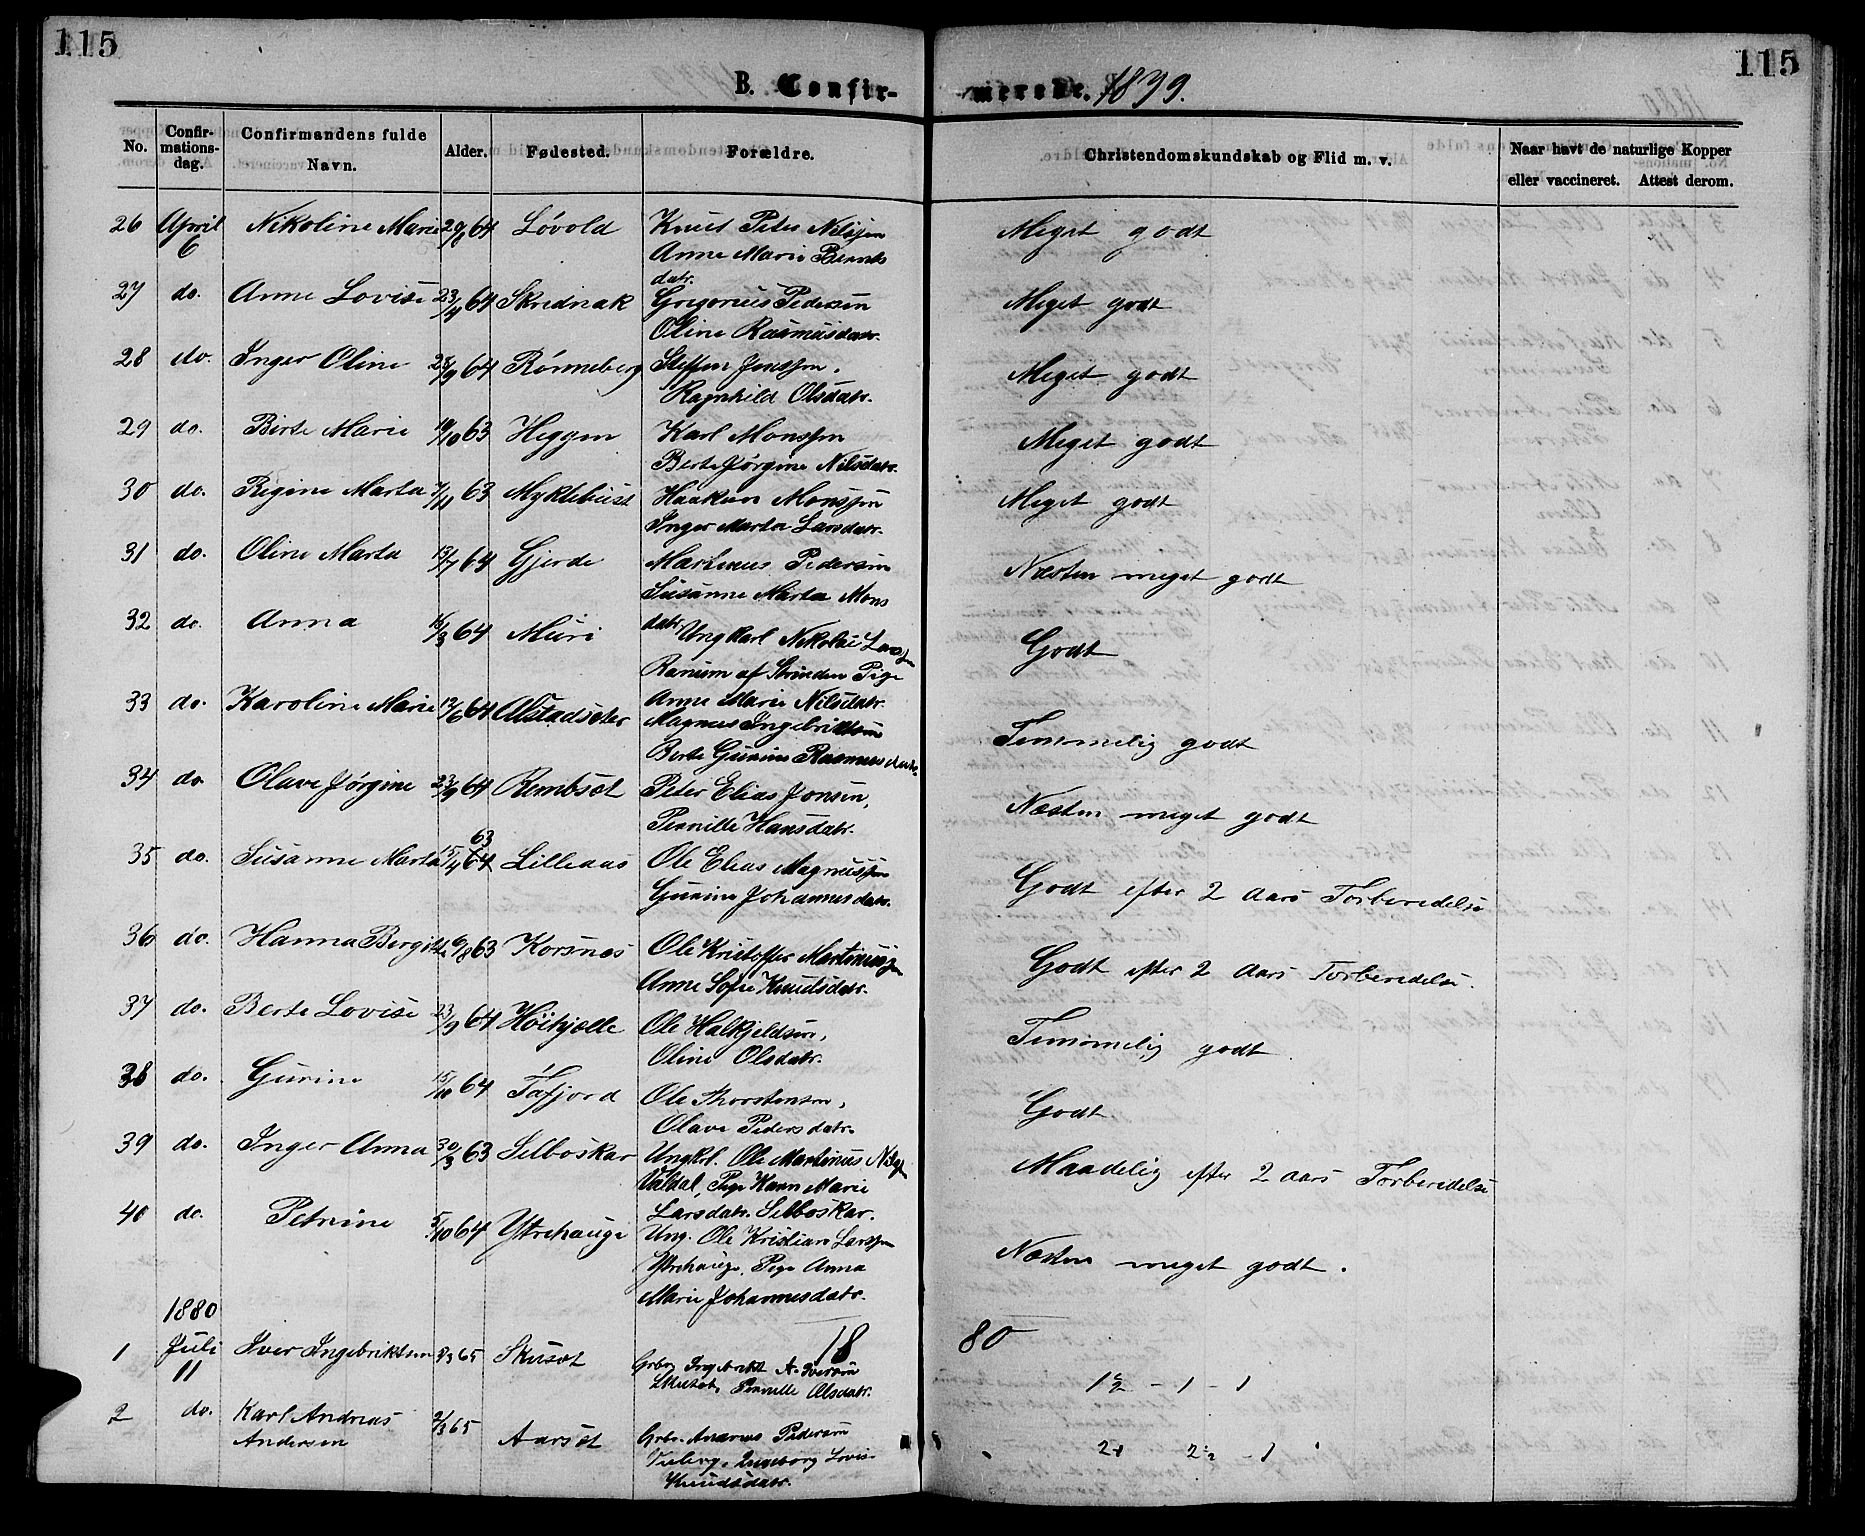 115
115
B. Confir-
merede. 1879.
No.
Confir-
mations-
dag.
Confirmandens fulde
Navn.
Alder.
Fødested.
Forældre.
Christendomskundskab og Flid m. v.
Naar havt de naturlige Kopper
eller vaccineret. Attest derom.
26 April 6 Nikoline Marie 29/8 64 Løvold Knut Peter Nilssen Meget godt
Anne Marie Bernts
datr.
27 do. Anne Lovise 23/4 64 Skrednak Gregorius Pedersen Meget godt
Oline Rasmusdatr.
28 do. Inger Oline 28/9 64 Rønneberg Steffen Jonssen. Meget godt
Ragnhild Olsdatr.
29 do. Birte Marie 19/10 63 Heggen Karl Monssen Meget godt
Berte Jørgine Nilsdatr.
30 do. Regine Marta 7/11 63 Myklebust Haakon Monssen Meget godt
Inger Marta Larsdatr.
31 do. Oline Marta 13/7 64 Gjerde Martinus Pedersen Næsten meget godt
Susanne Marta Mons
datr.
32 do. Anna 16/3 64 Muri Ungkarl Nikolai Larssen Godt
Ranum af Strinden Pige
Anne Marie Nilsdatr.
33 do. Karoline Marie 12/6 64 Alstadsæter Magnus Ingebriktsen Temmelig godt
Berte Gurine Rasmusdatr.
34 do Olave Jørgine 23/9 64 Rembsæt Peter Elias Jonsen, Næsten meget godt
Pernille Hansdatr.
63
35 do. Susanne Marta 15/4 64 Lilleaas Ole Elias Magnussen Godt efter 2 Aars Forberedelse
Gurine Johannesdatr.
36 do. Hanna Bergitte 6/8 63 Korsnæs Ole Kristoffer Martinussen Godt efter 2 Aars Forberedelse.
Anne Sofie Knutsdatr.
37 do. Berte Lovise 23/9 64 Høihjelle Ole Halkjeldsen, Temmelig godt.
Oline Olsdatr.
38 do. Gurine 15/10 64 Tafjord Ole Thorstensen, Godt
Olave Pedersdatr.
39 do. Inger Anna 30/3 63 Selboskar Ungkl. Ole Martinus Nilssen Maadelig efter 2 Aars Forberedelse
Valdal, Pige Karen Marie
Larsdatr. Selboskar.
40 do. Petrine 5/10 64 Ytrehauge Ung. Ole Kristian Larssen Næsten meget godt.
Ytrehauge, Pige Anna
Marie Johannesdatr.
1880
18 80
1 Juli 11 Iver Ingebriktsen 8/3 65 Skusæt Grbr. Ingebrikt A. Iversen
Skusæt, Pernille Olsdatr.
1½ - 1 - 1
2 do. Karl Andreas 2/3 65 Aarsæt Grbr. Andreas Pedersen
Andersen
Ingeborg Lovise
Knudsdatr.